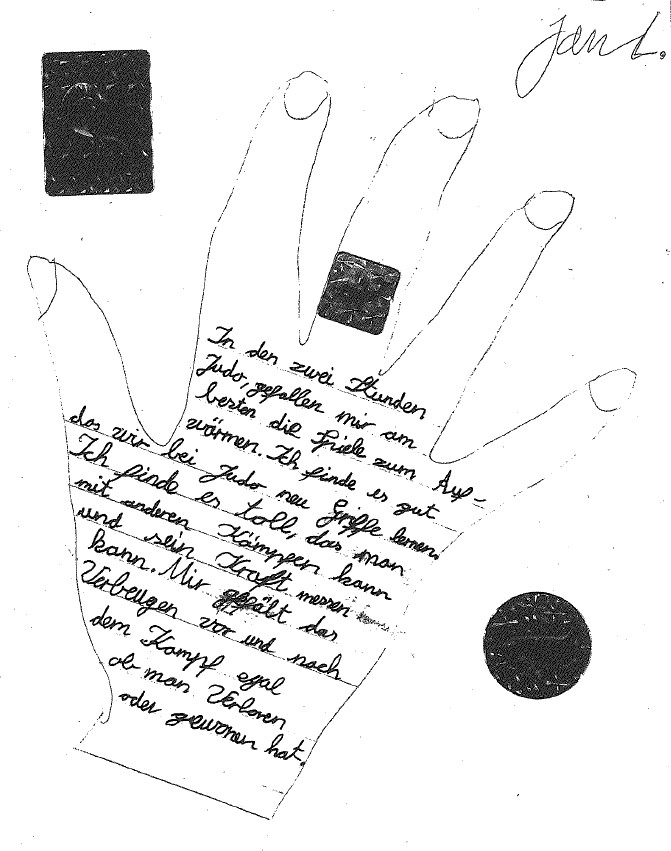 Jan L.
In den zwei Stunden
Judo, gefallen mir am
besten die Spiele zum Auf-
wärmen. Ich finde es gut
das wir bei Judo neu Griffe lernen.
Ich finde es toll, das man
mit anderen Kämpfen kann
und sein Kraft messen
kann. Mir gefält das
Verbeugen vor und nach
dem Kampf egal
ob man Verloren
oder gewonen hat.